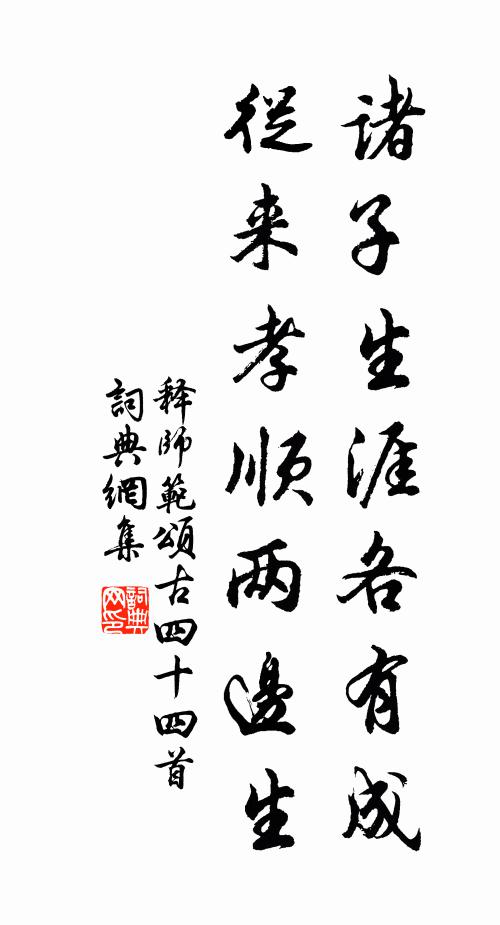 诸子生涯各有成
從来孝順两邊生
释师範頌古四十四首
詞典網集
詞典网印